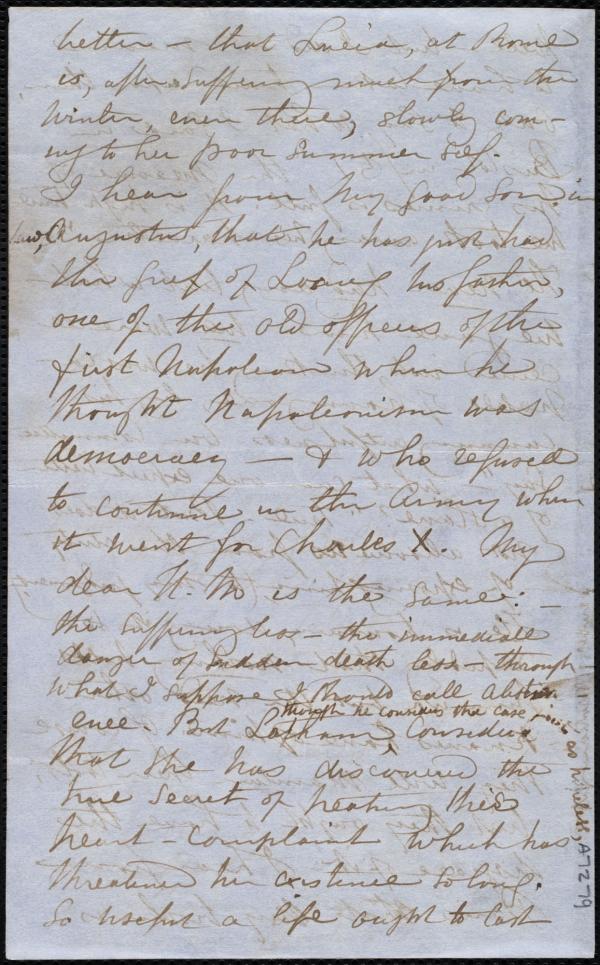 better – that Lucia, at Rome
is, after suffering much from the
Winter, even there, slowly com-
ing to her poor summer self.
I hear from My good Son-in
law, Augustus, that he has just had
the grief of Losing his father,
one of the old officers of the
first Napoleon when he
thought Napoleonism was
democracy – & who refused
to continue in the Army when
it went for Charles X. My
dear H. M is the same: –
the suffering less – the immediate
danger of sudden death less – through
what I suppose I should call abstin
ence. But Latham, considers
though he considers the case
as hopeless, A7279
that she has discovered the
true secret of treating this
heart-complaint which has
threatened her existence so long.
So useful a life ought to last